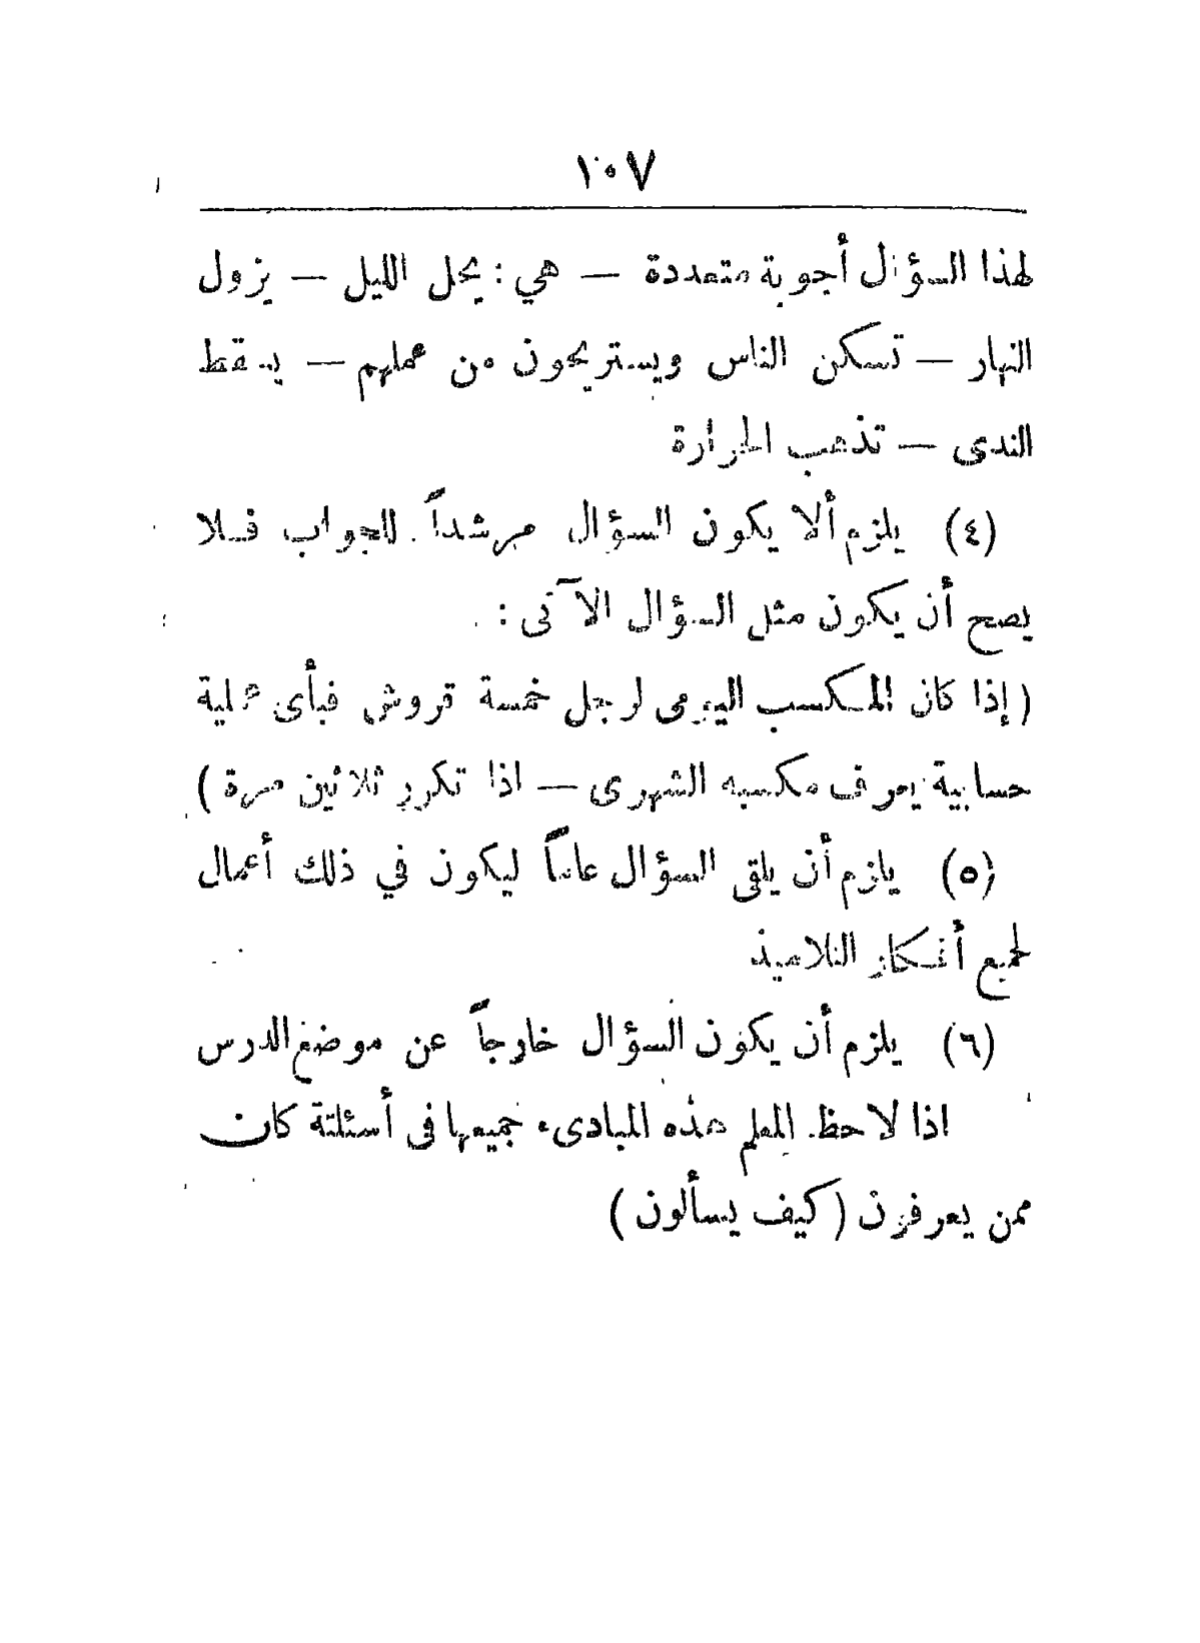 ١٠٧
لهذا السؤال أجوبة متعددة — هي : يحل الليل — يزول
النهار — تسكن الناس ويستريحون من عملهم — يسقط
الندى — تذهب الحرارة
(٤) يلزم ألا يكون السؤال مرشداً للجواب فلا
يصح أن يكون مثل السؤال الآتى :
( إذا كان المكسب اليومى لرجل خمسة قروش فبأى عملية
حسابية يعرف مكسبه الشهرى — اذا تكرر ثلاثين مرة )
(٥) يلزم أن يلقى السؤال عاماً ليكون في ذلك أعمال
لجميع أفكار التلاميذ
(٦) يلزم أن يكون السؤال خارجاً عن موضع الدرس
اذا لاحظ المعلم هذه المبادىء جميعها فى أسئلتة كان
ممن يعرفون ( كيف يسألون )